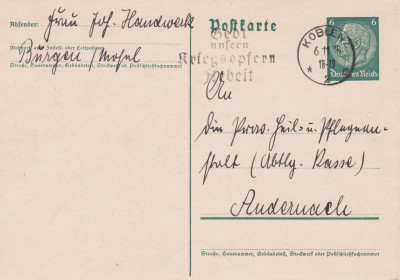 Absender: Frau Joh. Handwerk
Wohnort, auch Zustell- oder Leitpostamt
Burgen/Mosel
Straße, Hausnummer, Gebäudeteil, Stockwerk od. Postschließfachnummer
Postkarte
Gebt
unsern
Kriegsopfern
Arbeit
KOBLENZ
6.11.
18-19
* 2
6 6
Deutsches Reich
An
die Prov. Heil- u. Pflegean-
stalt (Abtlg. Kasse)
Andernach
Straße, Hausnummer, Gebäudeteil, Stockwerk oder Postschließfachnummer